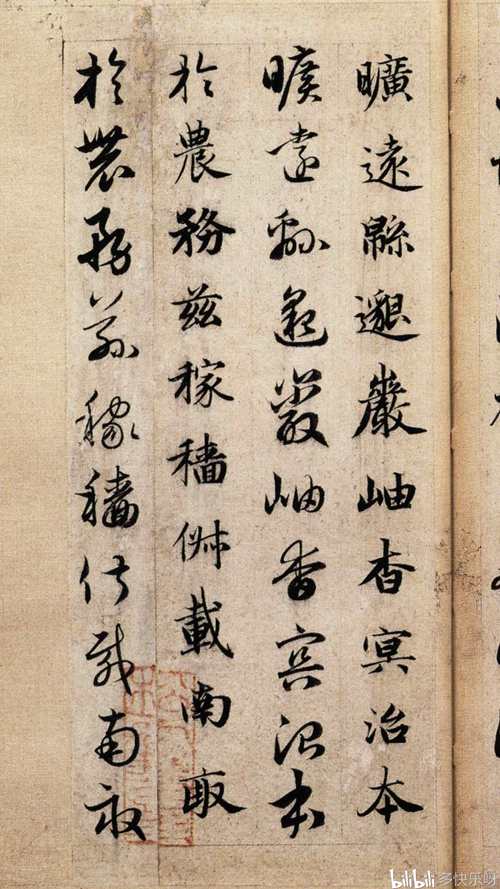 曠遠緜邈巖岫杳冥治本
曠遠緜邈巖岫杳冥治本
於農務茲稼穡俶載南畝
於農務茲稼穡俶載南畝
bilibili 多快乐呀